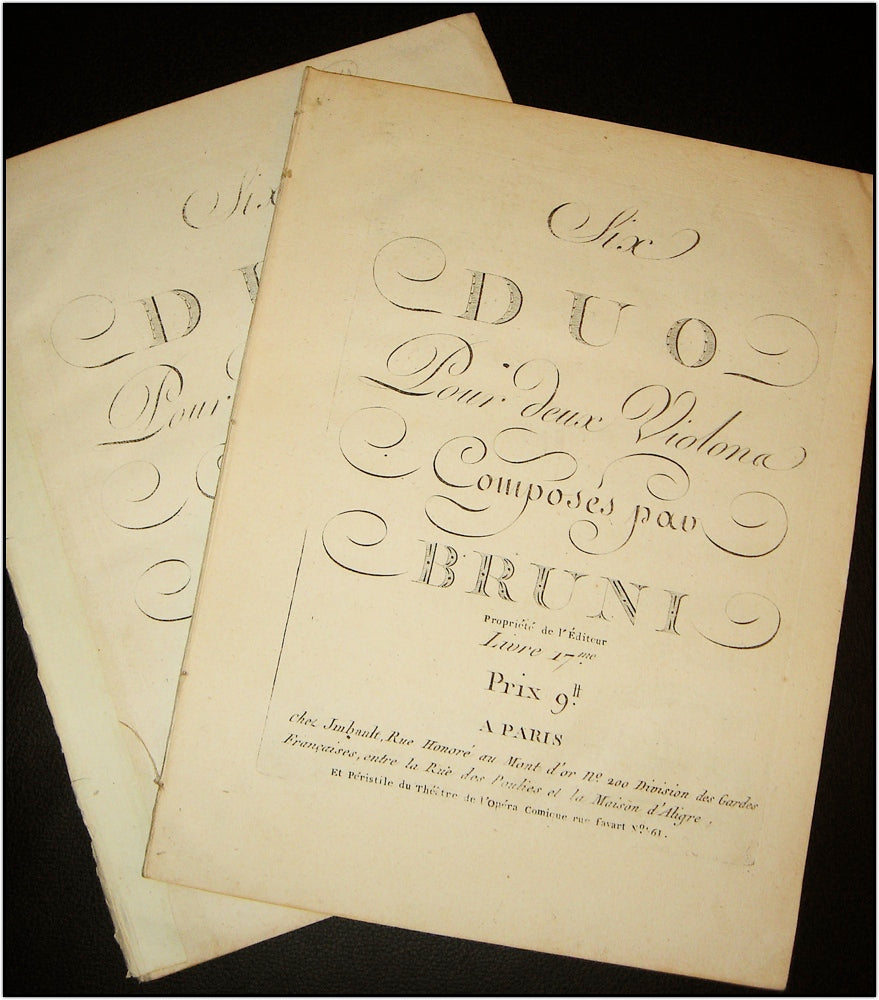 Six
DUO
Pour deux Violons
Composés par
BRUNI
Propriété de l'Éditeur
Livre 17.me
Prix 9.tt
A PARIS
chez Imbault, Rue Honoré au Mont d'or No. 200 Division des Gardes
Françaises, entre la Rue des Poulies et la Maison d'Aligre,
Et Péristile du Théâtre de l'Opéra Comique rue favart No. 61.
Six
D
Pour